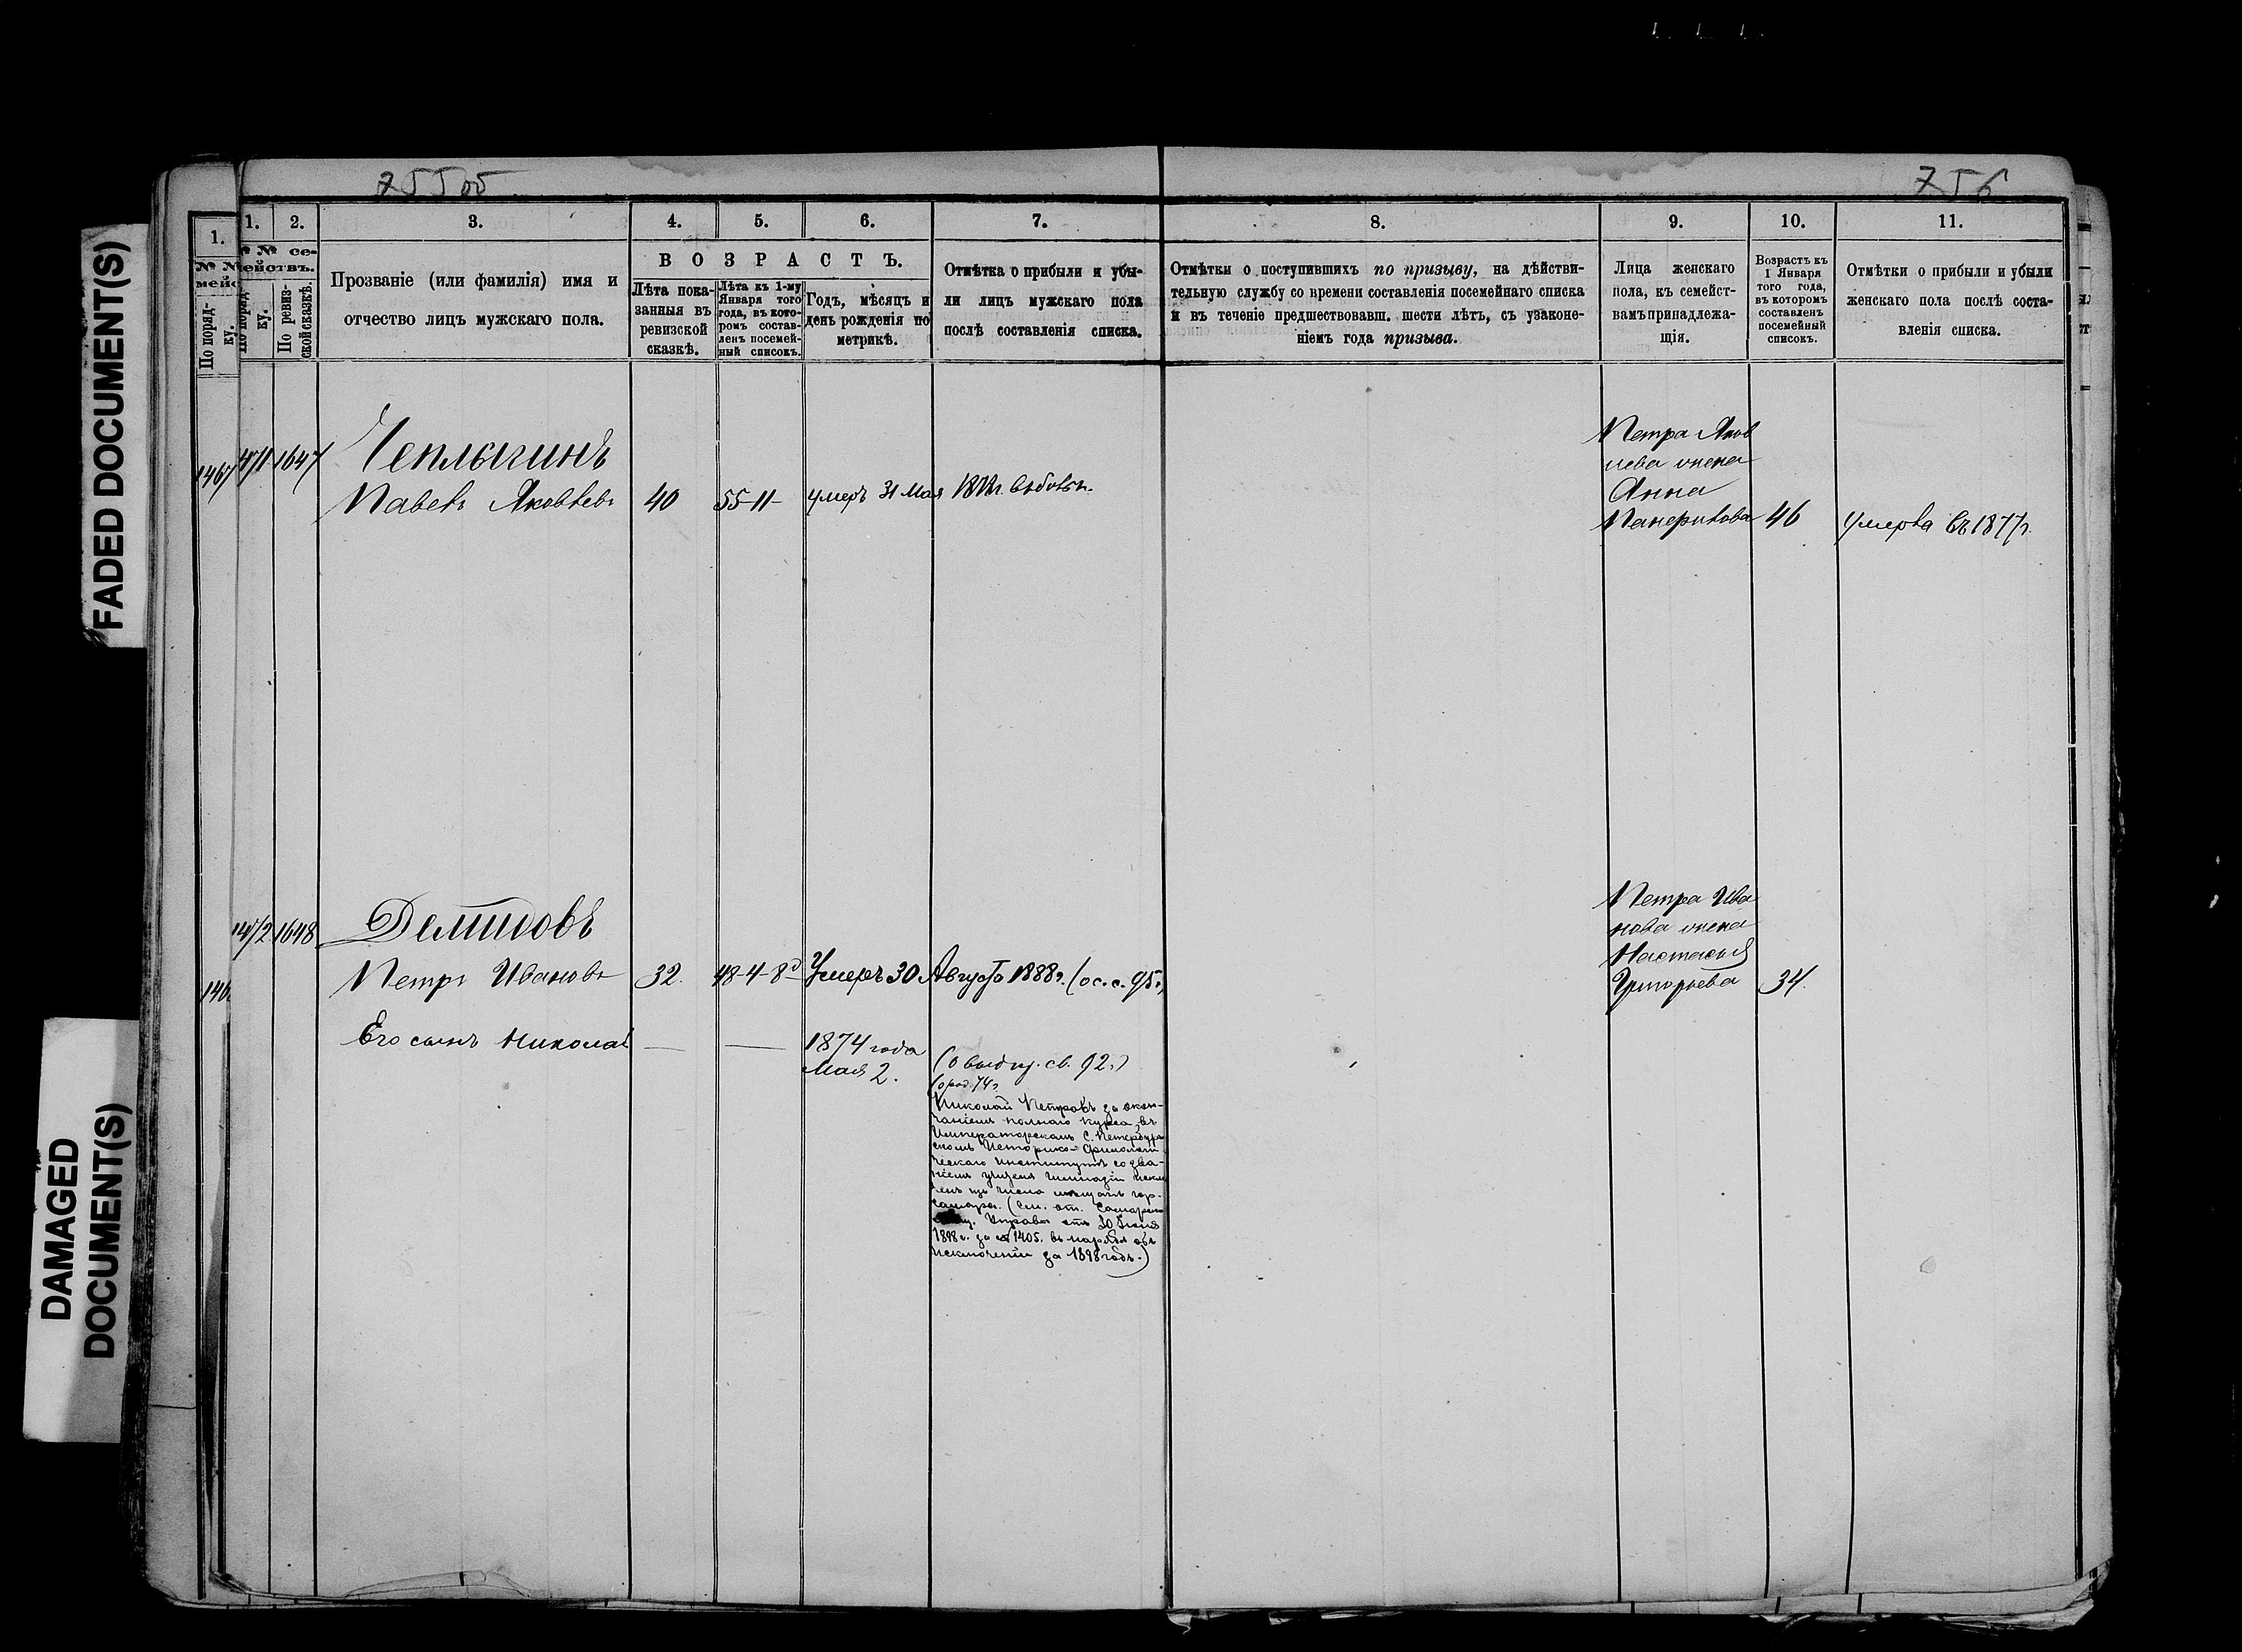 FADED DOCUMENT(S)
DAMAGED
DOCUMENT(S)
755 об
756
1.
№ №
мейс
По поряд-
ку.
1.
2.
№ № се-
мействъ.
По поряд-
ку.
По ревиз-
ской сказкѣ.
3.
Прозваніе (или фамилія) имя и
отчество лицъ мужскаго пола.
4.
5.
6.
ВОЗРАСТЪ.
Лѣта пока-
занныя въ
ревизской
сказкѣ.
Лѣта къ 1-му
Января того
года, въ кото-
ромъ состав-
ленъ посемей-
ный списокъ.
Годъ, мѣсяцъ и
день рожденія по
метрикѣ.
7.
Отмѣтка о прибыли и убы-
ли лицъ мужскаго пола
послѣ составленія списка.
8.
Отмѣтки о поступившихъ по призыву, на дѣйстви-
тельную службу со времени составленія посемейнаго списка
и въ теченіе предшествовавш. шести лѣтъ, съ узаконе-
ніемъ года призыва.
9.
Лица женскаго
пола, къ семейст-
вамъ принадлежа-
щія.
10.
Возрастъ къ
1 Января
того года,
въ которомъ
составленъ
посемейный
списокъ.
11.
Отмѣтки о прибыли и убыли
женскаго пола послѣ соста-
вленія списка.
1647
Чеплыгинъ
Павелъ Яковлевъ
40
55-11-
умеръ 31 Мая
Петра Яков
лева жена
Анна
Панфилова
46
Умерла въ 1877 г.
1648
Демидовъ
Петръ Ивановъ
32.
48-4-8
Умеръ 30 Августа 1888 г. (ос. с. 95 г.)
Петра Ива
нова жена
Настасья
Григорьева
34.
Его сынъ Николай
—
—
1874 года
Мая 2.
св. 92 г.)
74 г.
Николай Петровъ за окон-
чаніемъ полнаго курса въ
Императорскомъ С. Петербург
скомъ Историко-Филологи
ческаго института со зва-
ніемъ учителя гимназіи исклю
ченъ изъ числа мѣщанъ гор.
Самары. (См. от. Самарск
Управы отъ 30 Іюня
1898 г. за № 1405. въ нарядѣ объ
исключеніи за 1898 годъ.)